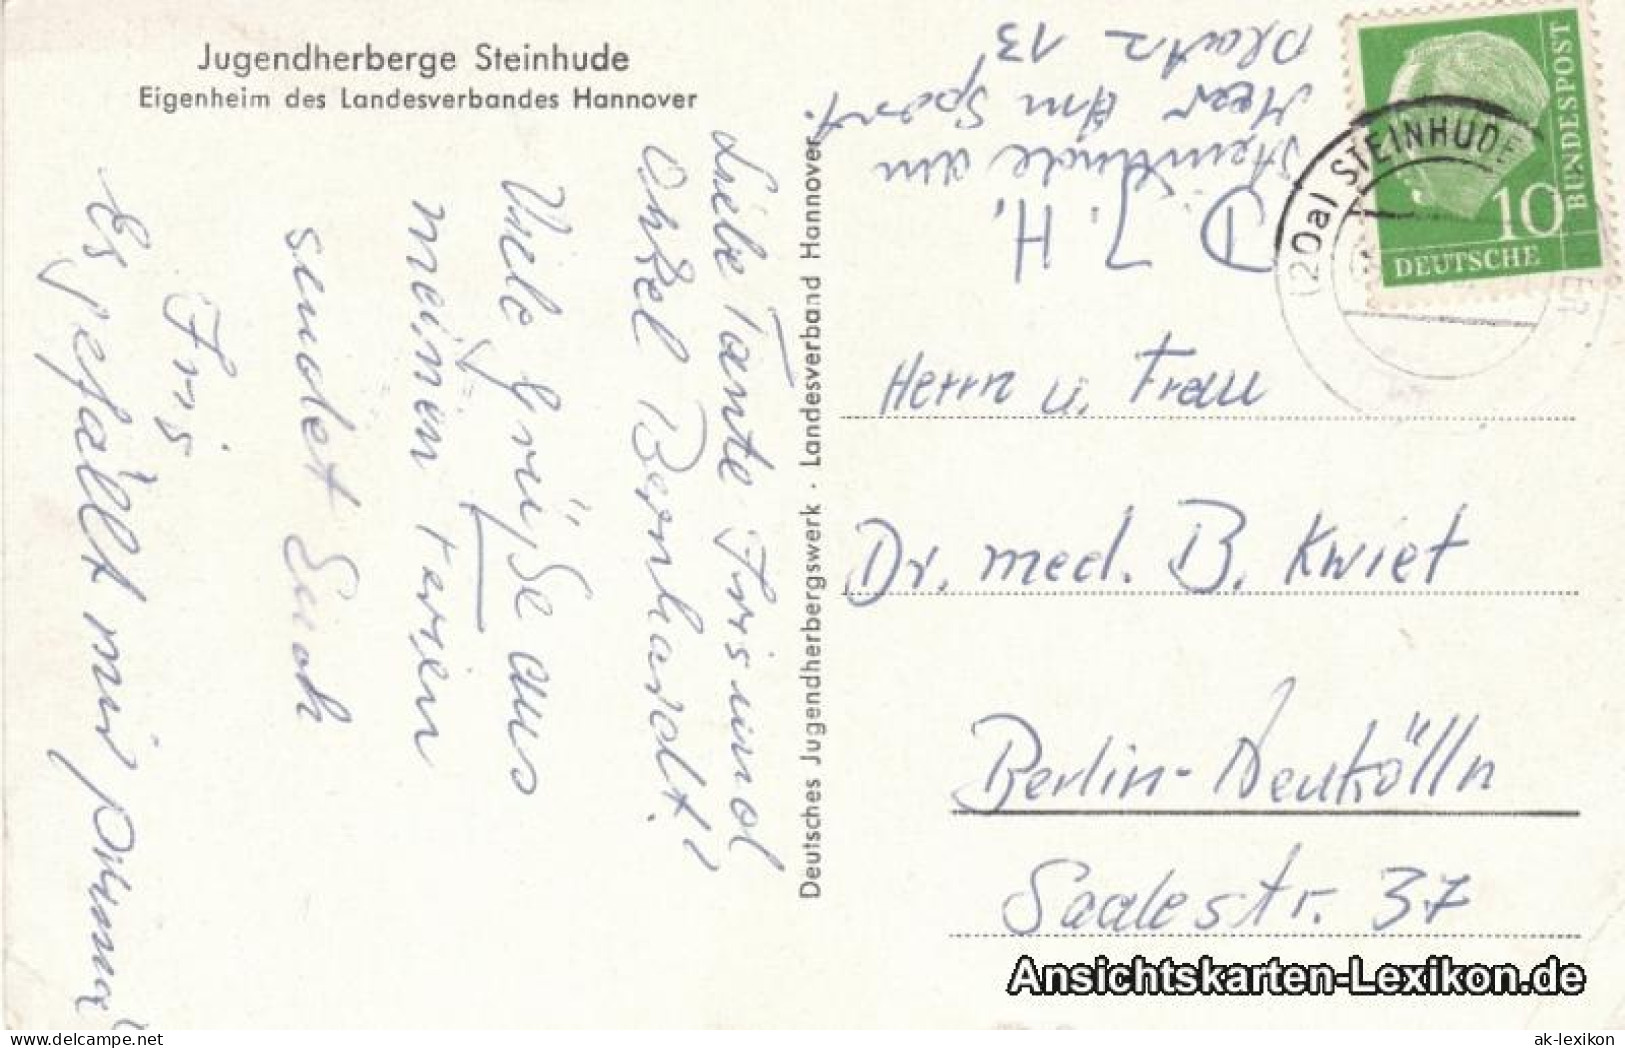 Jugendherberge Steinhude
Eigenheim des Landesverbandes Hannover
Liebe Tante Iris und
Onkel Bernhardt!
Viele Grüße aus
meinen Ferien
sendet Euch
Iris
Es gefällt mir prima!
Deutsches Jugendherbergswerk · Landesverband Hannover
D. J. H.
Steinhude am
Meer Am Sport.
Platz 13
10
DEUTSCHE
BUNDESPOST
(20a) STEINHUDE
Herrn u. Frau
Dr. med. B. Kwiet
Berlin-Neukölln
Saalestr. 37
Ansichtskarten-Lexikon.de
delcampe.net
ak-lexikon